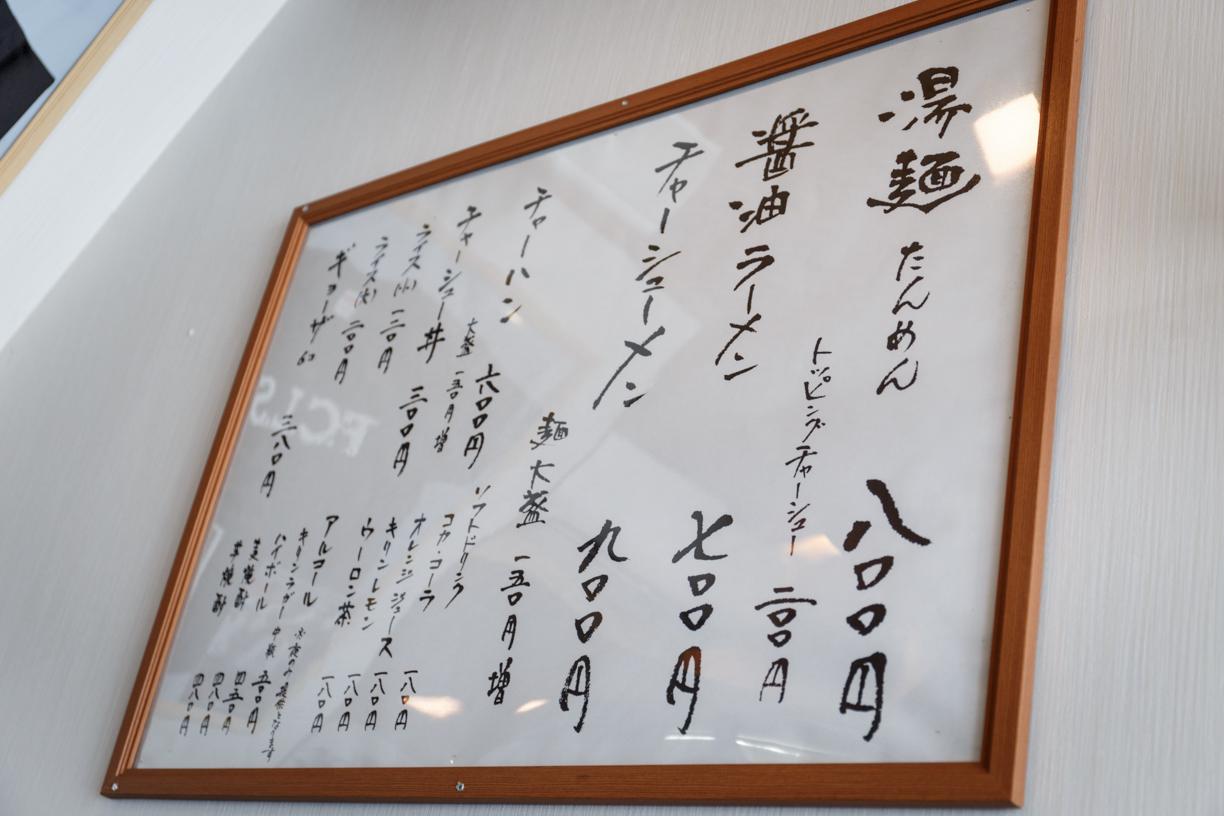 湯麺 たんめん 八〇〇円
トッピングチャーシュー 二〇〇円
醤油ラーメン 七〇〇円
チャーシューメン 九〇〇円
麺大盛 一五〇円増
チャーハン 六〇〇円
大盛 一五〇円増
チャーシュー丼 三〇〇円
ライス(小) 一三〇円
ライス(大) 二〇〇円
ギョーザ 6コ 三八〇円
ソフトドリンク
コカ・コーラ 一八〇円
オレンジジュース 一八〇円
キリンレモン 一八〇円
ウーロン茶 一八〇円
アルコール ※夜のみ提供となります
キリンラガー 中瓶 五〇〇円
ハイボール 四五〇円
麦焼酎 四八〇円
芋焼酎 四八〇円